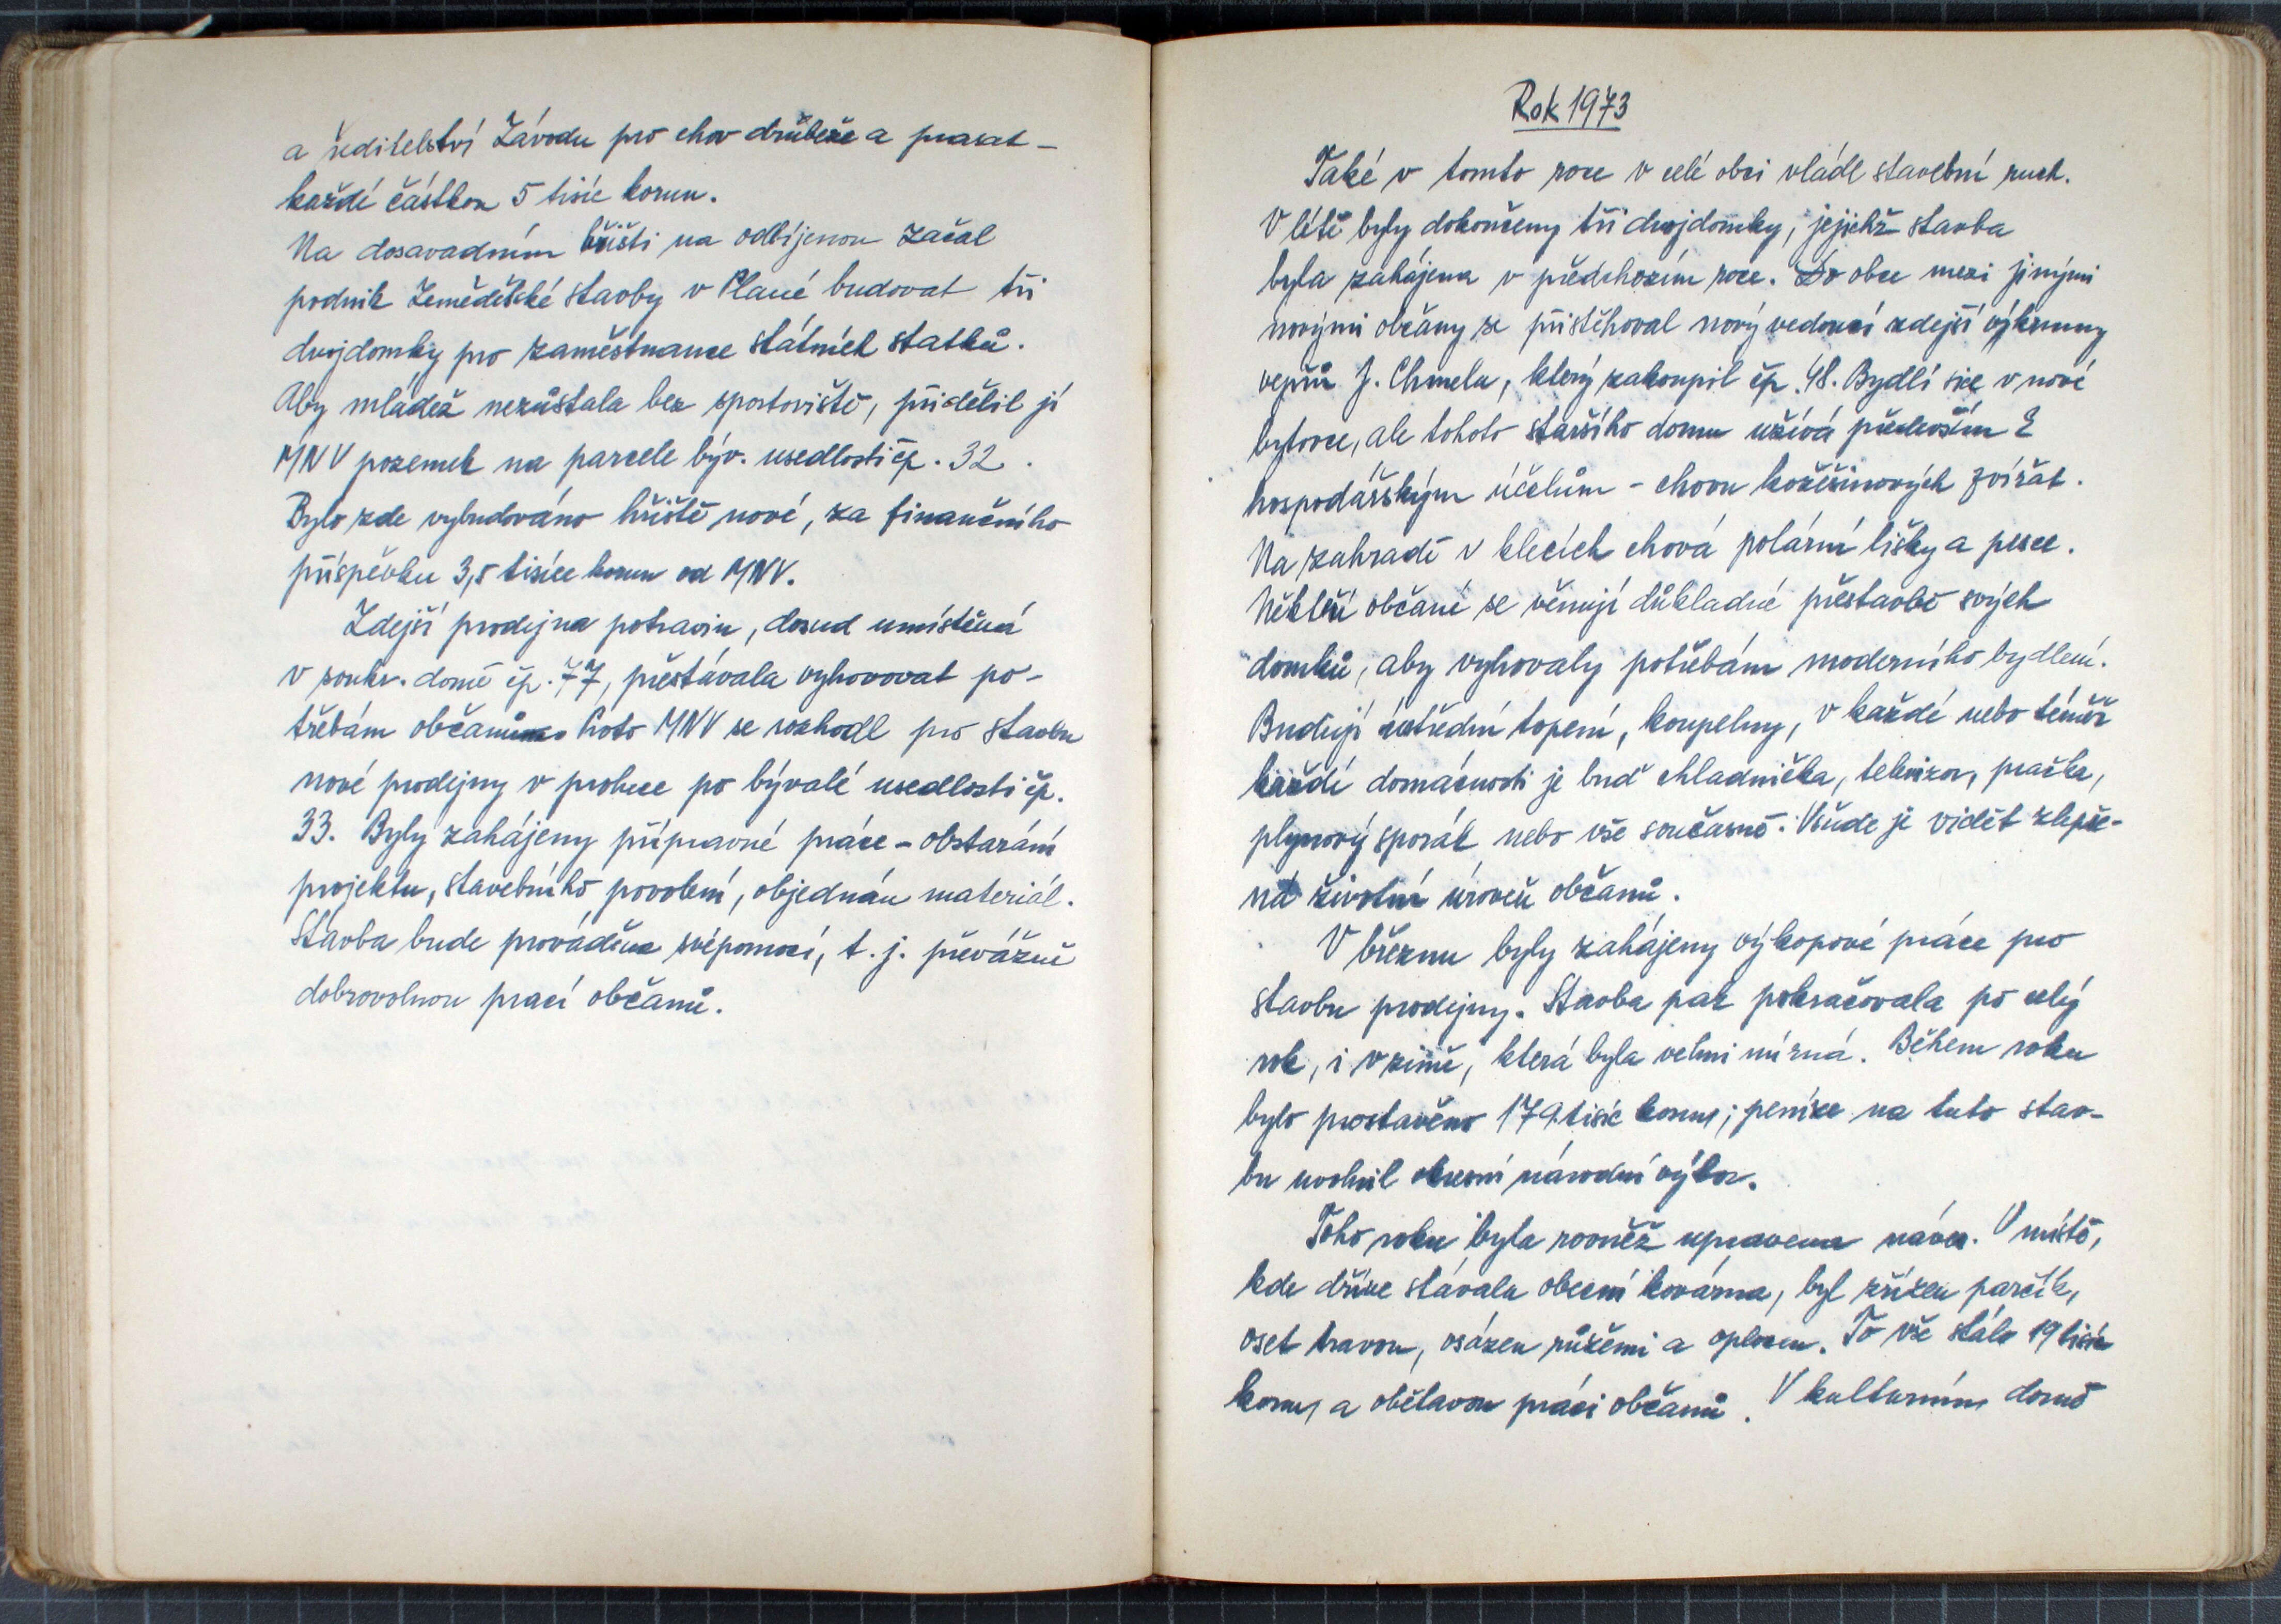 a ředitelství Závodu pro chov drůbeže a prasat -
každé částkou 5 tisíc korun.
Na dosavadním hřišti na odbíjenou začal
podnik Zemědělské stavby v Plané budovat tři
dvojdomky pro zaměstnance státních statků.
Aby mládež nezůstala bez sportoviště, přidělil jí
MNV pozemek na parcele býv. usedlosti čp. 32.
Bylo zde vybudováno hřiště nové, za finančního
příspěvku 3,5 tisíce korun od MNV.
Zdejší prodejna potravin, dosud umístěná
v soukr. domě čp. 77, přestávala vyhovovat po-
třebám občanů. Proto MNV se rozhodl pro stavbu
nové prodejny v proluce po bývalé usedlosti čp.
33. Byly zahájeny přípravné práce - obstarání
projektu, stavebního povolení, objednán materiál.
Stavba bude prováděna svépomocí, t. j. převážně
dobrovolnou prací občanů.
Rok 1973
Také v tomto roce v celé obci vládl stavební ruch.
V létě byly dokončeny tři dvojdomky, jejichž stavba
byla zahájena v předchozím roce. Do obce mezi jinými
novými občany se přistěhoval nový vedoucí zdejší výkrmny
vepřů J. Chmela, který zakoupil čp. 48. Bydlí sice v nové
bytovce, ale tohoto staršího domu užívá především k
hospodářským účelům - chovu kožešinových zvířat.
Na zahradě v klecích chová polární lišky a pesce.
Někteří občané se věnují důkladné přestavbě svých
domků, aby vyhovaly potřebám moderního bydlení.
Budují ústřední topení, koupelny, v každé nebo téměř
každé domácnosti je buď chladnička, televizor, pračka,
plynový sporák nebo vše současně. Všude je vidět zlepše-
ná životní úroveň občanů.
V březnu byly zahájeny výkopové práce pro
stavbu prodejny. Stavba pak pokračovala po celý
rok, i v zimě, která byla velmi mírná. Během roku
bylo prostavěno 179 tisíc korun; peníze na tuto stav-
bu uvolnil okresní národní výbor.
Toho roku byla rovněž upravena náves. V místě,
kde dříve stávala obecní kovárna, byl zřízen parčík,
oset travou, osázen růžemi a oplocen. To vše stálo 19 tisíc
korun a obětavou práci občanů. V kulturním domě